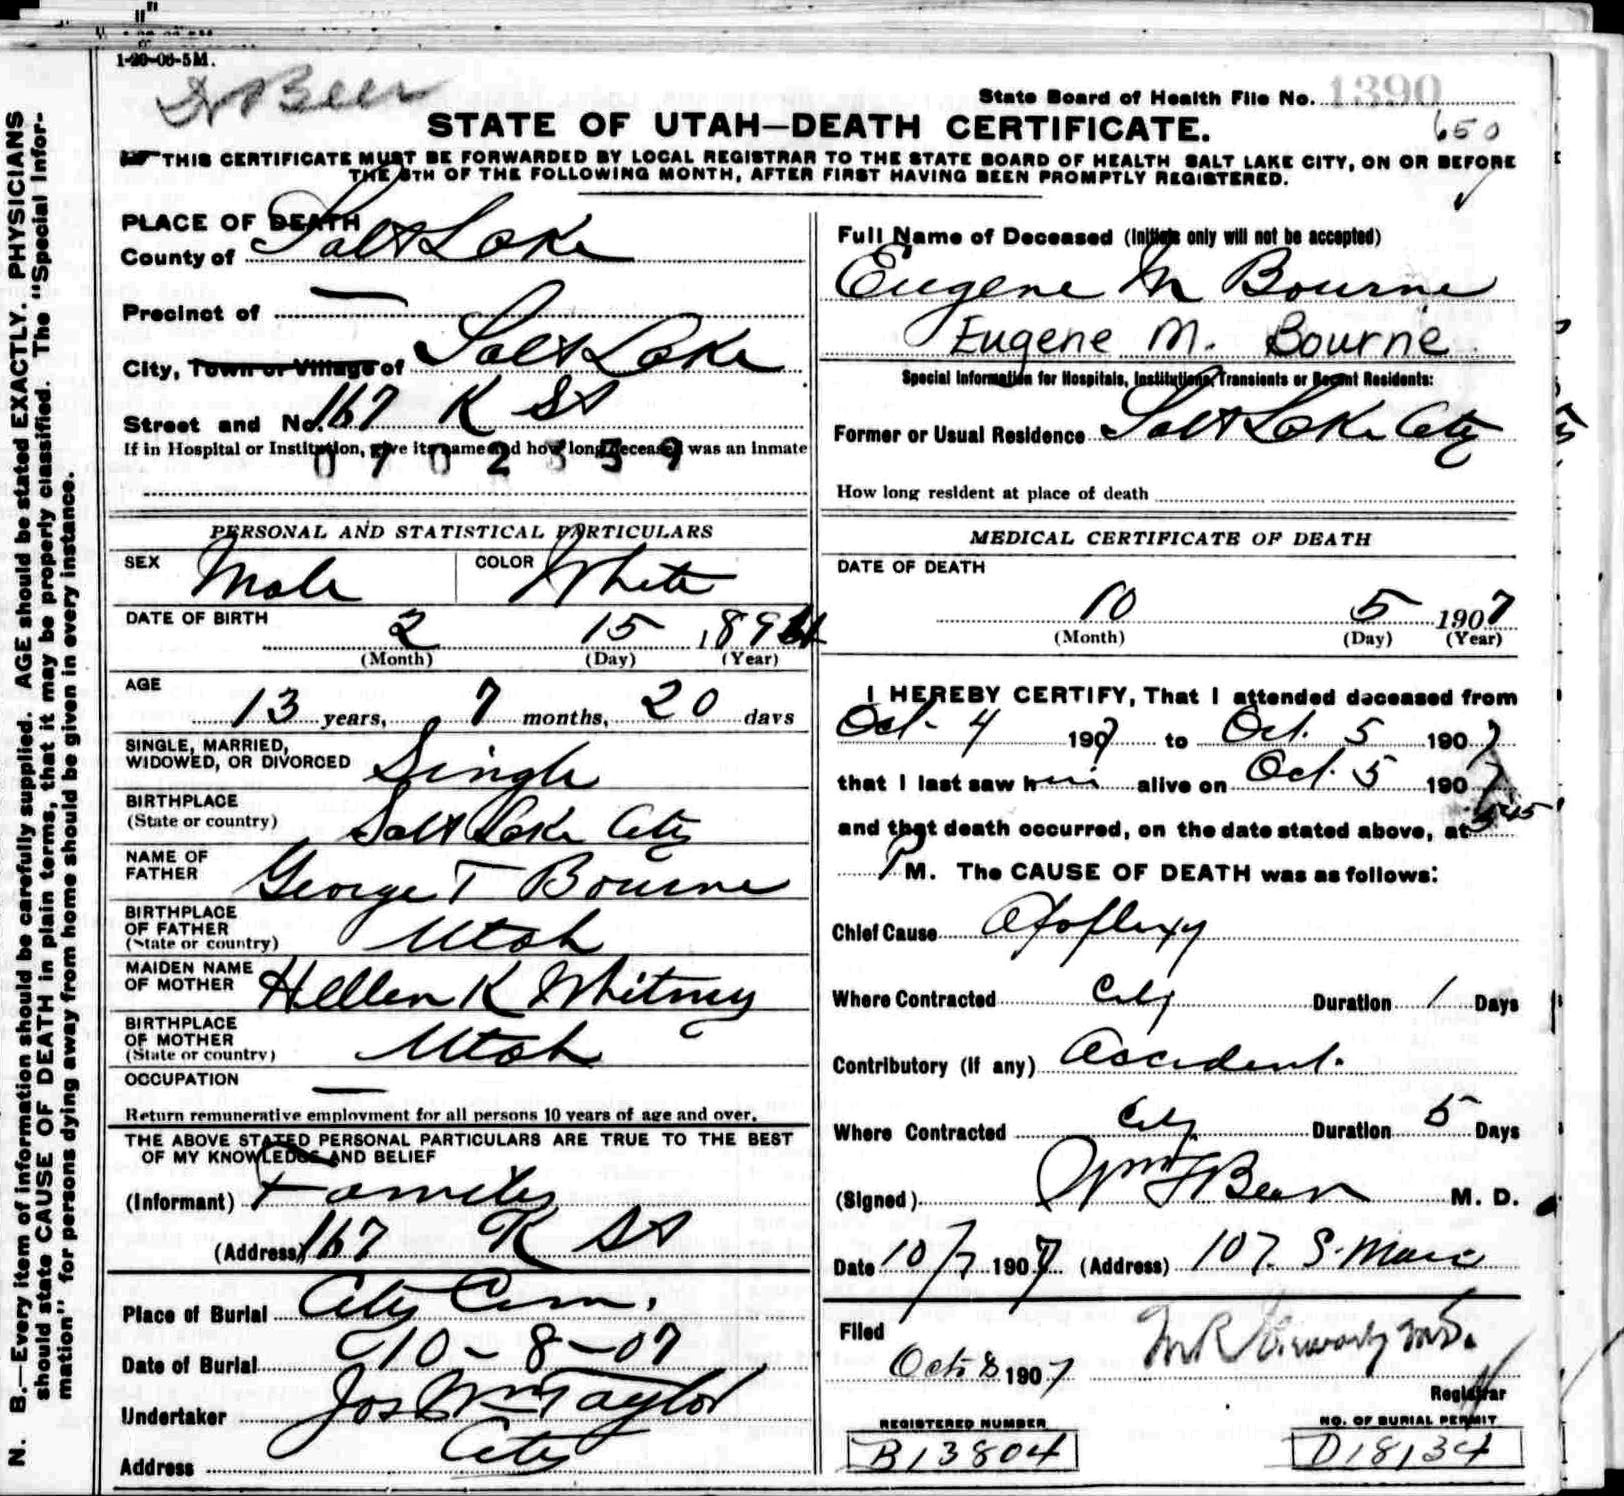 1-20-06-5M.
Dr Beer
State Board of Health File No. 1390
650
STATE OF UTAH—DEATH CERTIFICATE.
THIS CERTIFICATE MUST BE FORWARDED BY LOCAL REGISTRAR TO THE STATE BOARD OF HEALTH SALT LAKE CITY, ON OR BEFORE
THE 5TH OF THE FOLLOWING MONTH, AFTER FIRST HAVING BEEN PROMPTLY REGISTERED.
PLACE OF DEATH
County of Salt Lake
Precinct of —
City, Town or Village of Salt Lake
Street and No. 167 K St
If in Hospital or Institution, give its name and how long deceased was an inmate
PERSONAL AND STATISTICAL PARTICULARS
SEX Male COLOR White
DATE OF BIRTH
2 15 1894
(Month) (Day) (Year)
AGE
13 years, 7 months, 20 days
SINGLE, MARRIED,
WIDOWED, OR DIVORCED Single
BIRTHPLACE
(State or country) Salt Lake City
NAME OF
FATHER George T Bourne
BIRTHPLACE
OF FATHER
(State or country) Utah
MAIDEN NAME
OF MOTHER Hellen K Whitney
BIRTHPLACE
OF MOTHER
(State or country) Utah
OCCUPATION —
Return remunerative employment for all persons 10 years of age and over.
THE ABOVE STATED PERSONAL PARTICULARS ARE TRUE TO THE BEST
OF MY KNOWLEDGE AND BELIEF
(Informant) Family
(Address) 167 K St
Place of Burial City Cem.
Date of Burial 10-8-07
Undertaker Jos Wm Taylor
Address City
Full Name of Deceased (Initials only will not be accepted)
Eugene M Bourne
Eugene M. Bourne
Special Information for Hospitals, Institutions, Transients or Recent Residents:
Former or Usual Residence Salt Lake City
How long resident at place of death
MEDICAL CERTIFICATE OF DEATH
DATE OF DEATH
10 5 1907
(Month) (Day) (Year)
I HEREBY CERTIFY, That I attended deceased from
Oct. 4 1907 to Oct. 5 1907
that I last saw him alive on Oct. 5 1907
and that death occurred, on the date stated above, at 545
P M. The CAUSE OF DEATH was as follows:
Chief Cause Apoplexy
Where Contracted City Duration 1 Days
Contributory (if any) Accident.
Where Contracted City Duration 5 Days
(Signed) Wm F Beer M. D.
Date 10/7 1907 (Address) 107. S. Main
Filed
Oct 8 1907
Registrar
REGISTERED NUMBER
B13804
NO. OF BURIAL PERMIT
D18134
N. B.—Every item of information should be carefully supplied. AGE should be stated EXACTLY. PHYSICIANS
should state CAUSE OF DEATH in plain terms, that it may be properly classified. The "Special Infor-
mation" for persons dying away from home should be given in every instance.